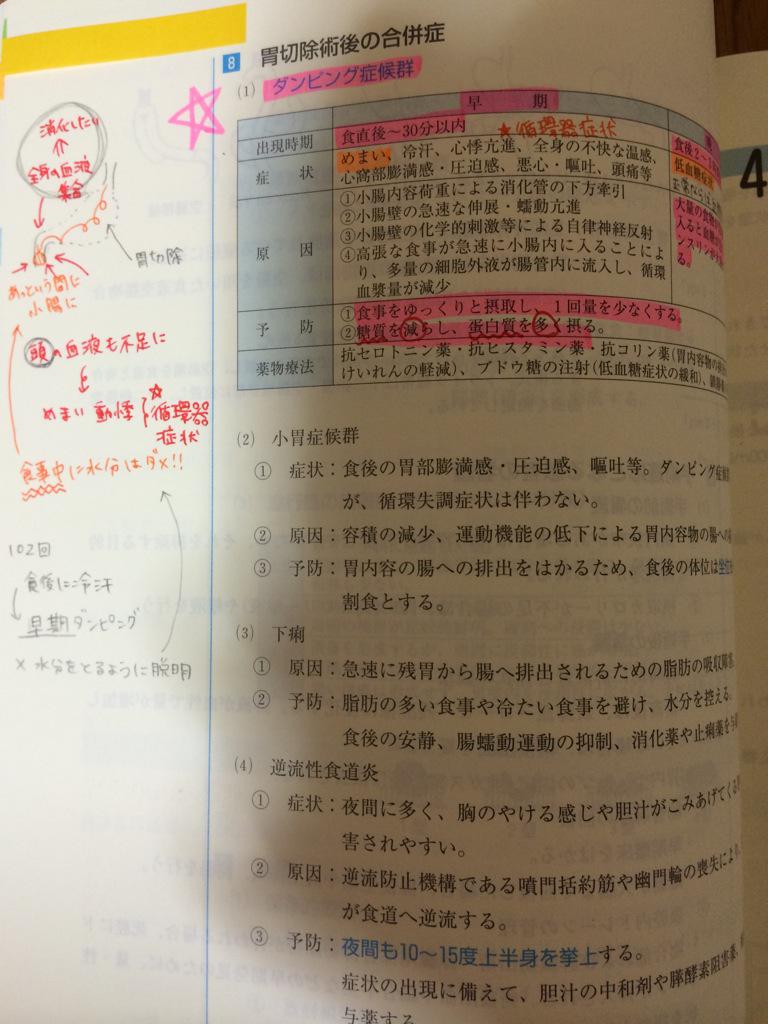 8 胃切除術後の合併症
(1) ダンピング症候群
早期
出現時期
食直後～30分以内
★循環器症状
症状
めまい、冷汗、心悸亢進、全身の不快な温感、
心窩部膨満感・圧迫感、悪心・嘔吐、頭痛等
低血糖症状
原因
①小腸内容荷重による消化管の下方牽引
②小腸壁の急速な伸展・蠕動亢進
③小腸壁の化学的刺激等による自律神経反射
④高張な食事が急速に小腸内に入ることによ
り、多量の細胞外液が腸管内に流入し、循環
血漿量が減少
大量の
入ると血糖
ンスリンが
る。
予防
①食事をゆっくりと摂取し、1回量を少なくする。
②糖質を減らし、蛋白質を多く摂る。
薬物療法
抗セロトニン薬・抗ヒスタミン薬・抗コリン薬(胃内容物の
けいれんの軽減)、ブドウ糖の注射(低血糖症状の緩和)、
(2) 小胃症候群
① 症状：食後の胃部膨満感・圧迫感、嘔吐等。ダンピング症
が、循環失調症状は伴わない。
② 原因：容積の減少、運動機能の低下による胃内容物の腸への
③ 予防：胃内容の腸への排出をはかるため、食後の体位は坐
割食とする。
(3) 下痢
① 原因：急速に残胃から腸へ排出されるための脂肪の吸収障
② 予防：脂肪の多い食事や冷たい食事を避け、水分を控える。
食後の安静、腸蠕動運動の抑制、消化薬や止痢薬を
(4) 逆流性食道炎
① 症状：夜間に多く、胸のやける感じや胆汁がこみあげてくる
害されやすい。
② 原因：逆流防止機構である噴門括約筋や幽門輪の喪失により
が食道へ逆流する。
③ 予防：夜間も10～15度上半身を挙上する。
症状の出現に備えて、胆汁の中和剤や膵酵素阻害薬、
与薬する。
消化したい
全身の血液
集合
胃切除
あっという間に
小腸に
頭の血液も不足に
めまい 動悸
☆循環器
症状
食事中に水分はダメ!!
102回
食後に冷汗
早期ダンピング
× 水分をとるように説明
4